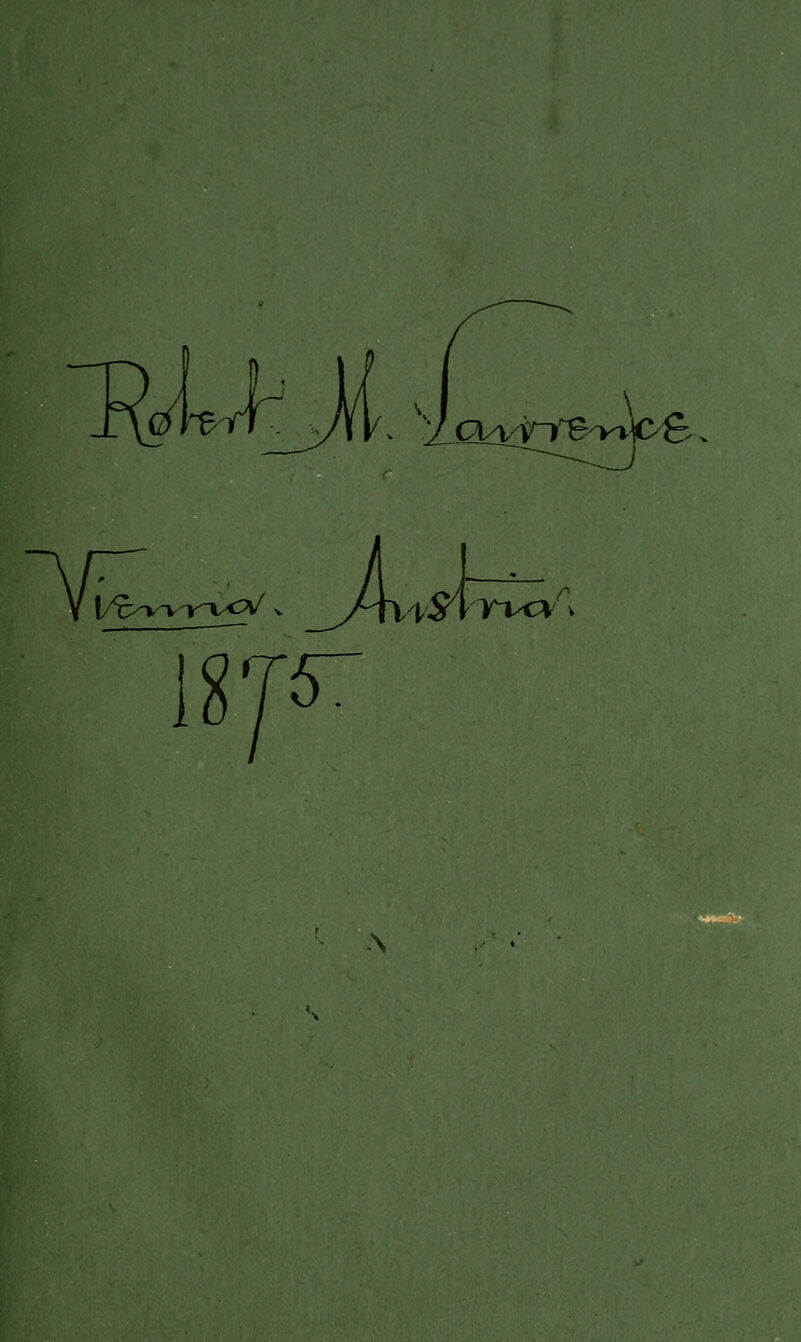 Robert M. Lawrence.
Vienna. Austria.
1875.